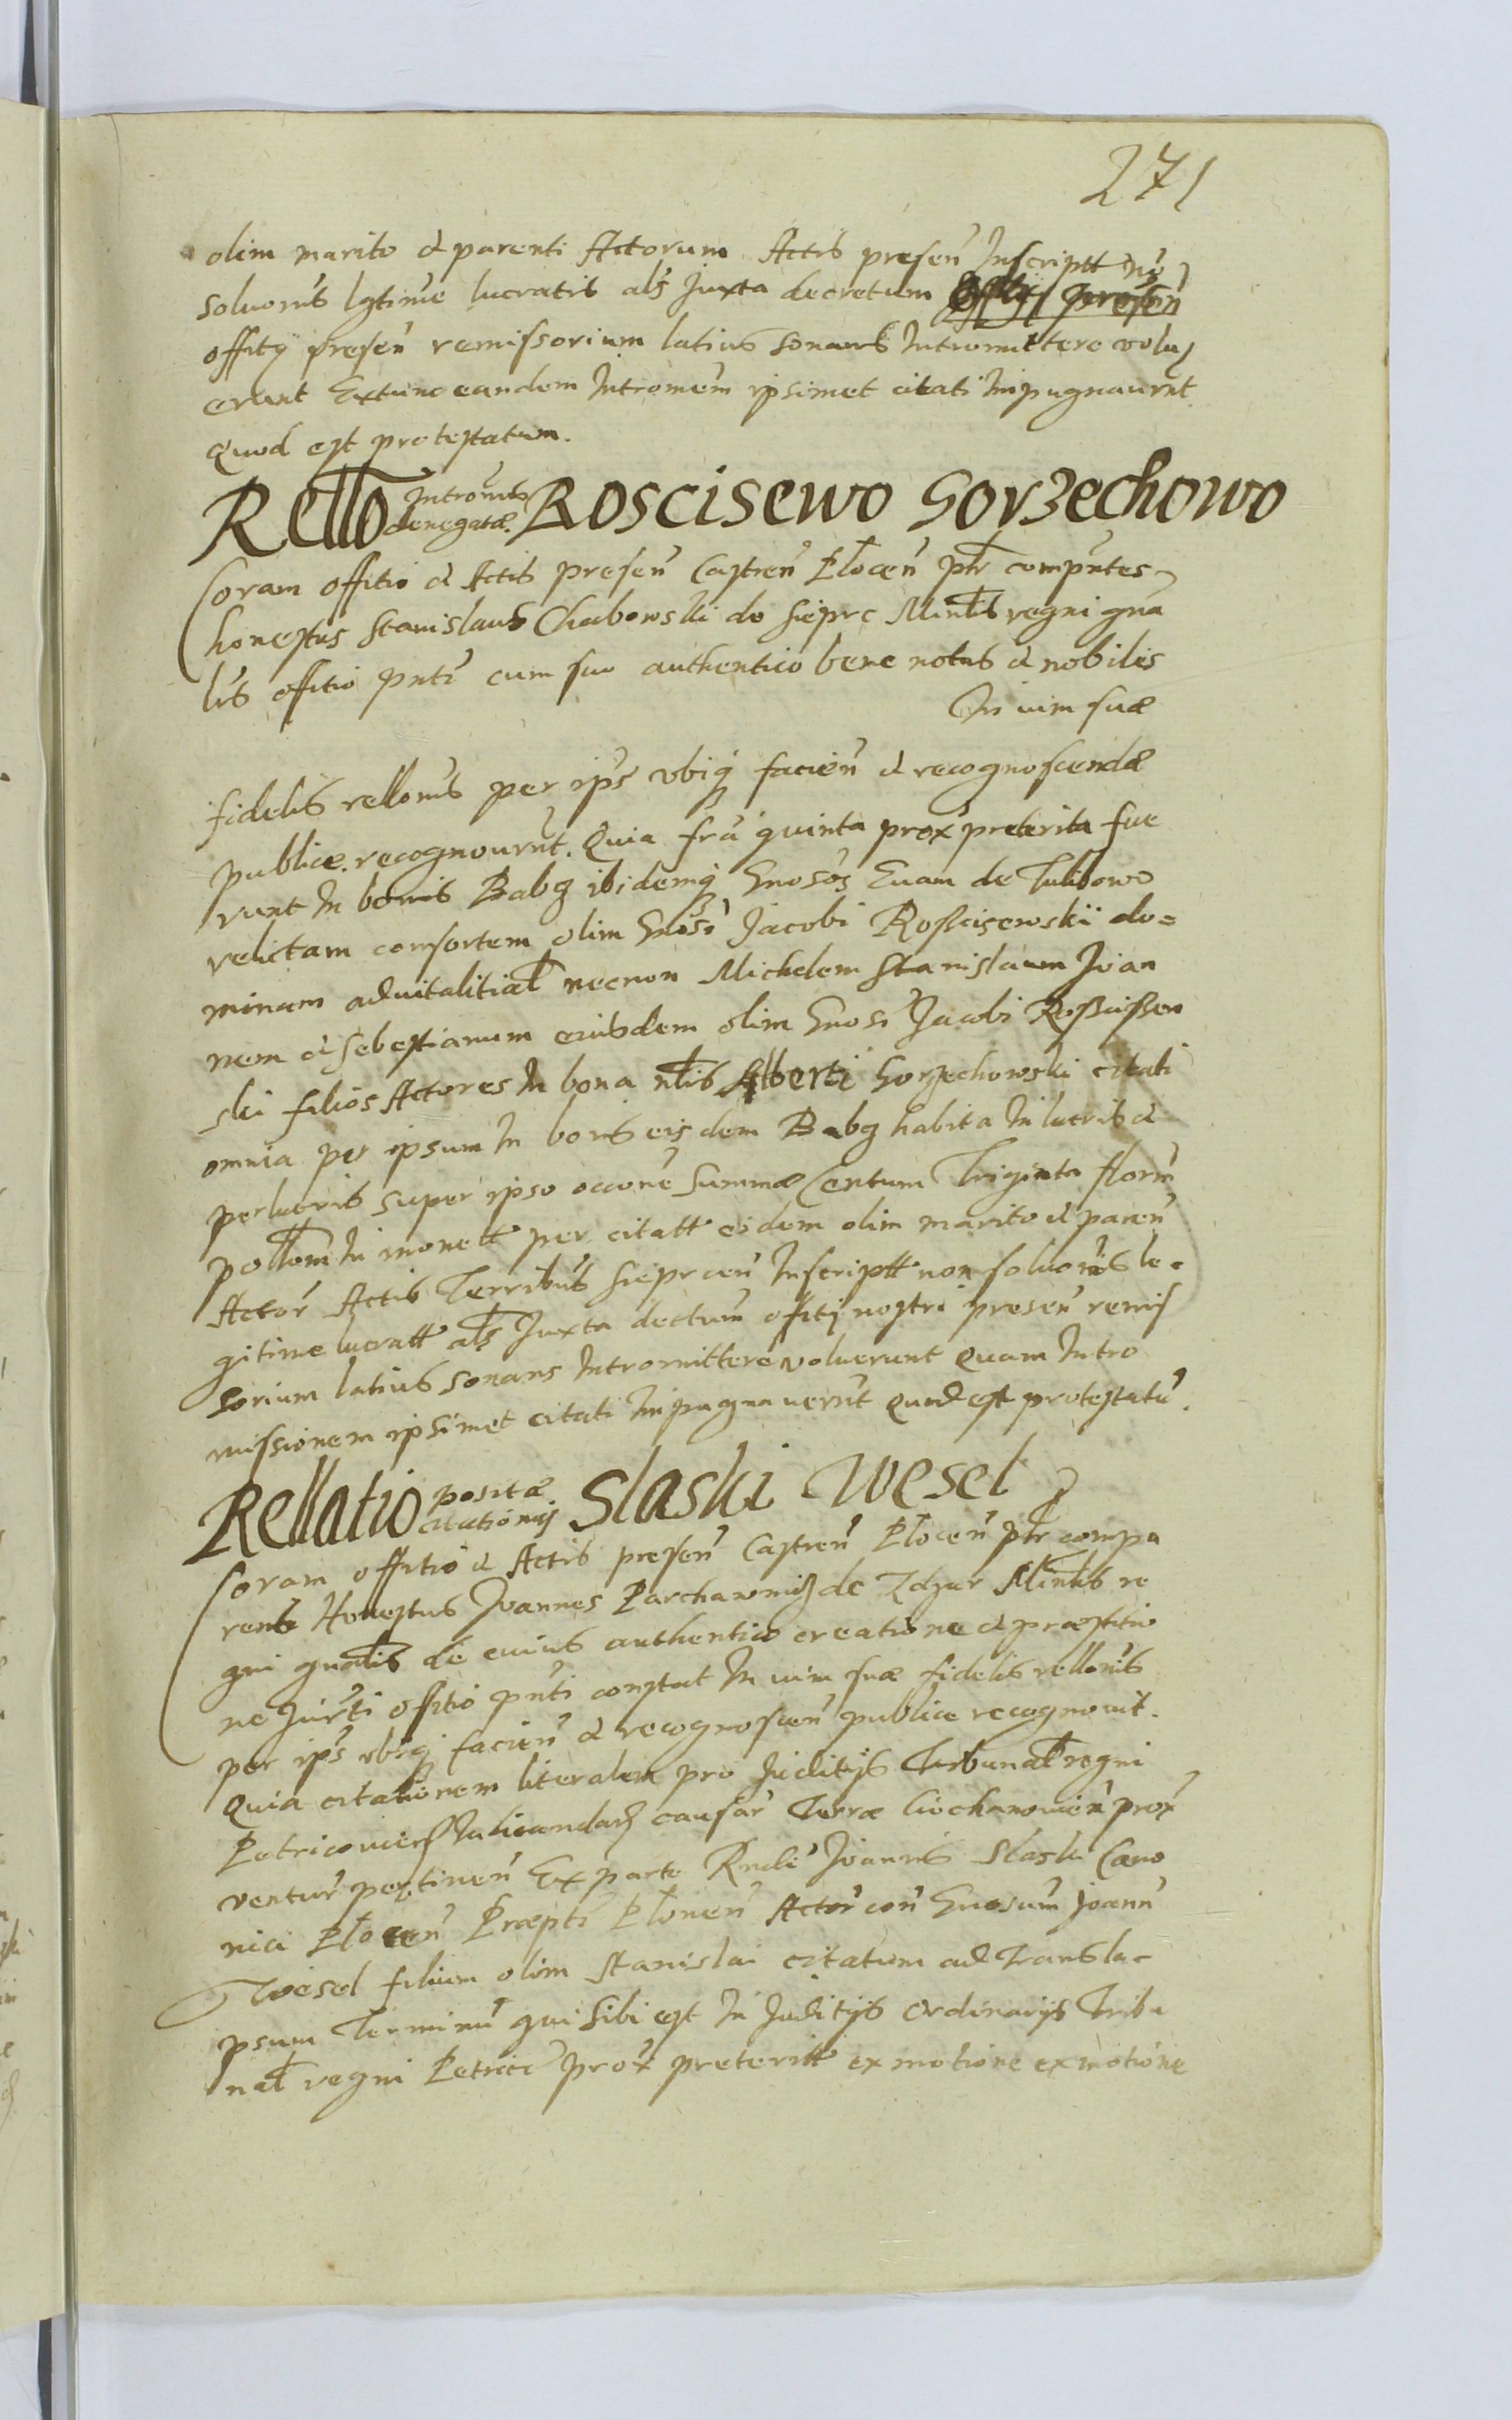 271
olim marito & parenti Actorum Actis presen̄ Inscriptt nō
soluonis lgtime lucratis als Juxta decretum offitij presen̄
offity presen̄ remissorium latius sonans Intromittere volu
erunt Extunc eandem Intromem̄ ipsimet citati Impugnaurnt
Quod est protestatum.
Rello Intromis denegatæ. Roscisewo Gorzechowo
Coram offitio & Actis presen̄ Castren̄ Plocen̄ ptr compn̄tes
honestus Stanislaus Chabowski de Sieprc Minlis regni gna
lis offitio pn̄ti cum suo authentico bene notus & nobilis
In uim suæ
fidelis rellonis per ips̄ vbiq facien̄ & recognoscendæ
publice recognourn̄t. Quia fra quinta prox preterita fue
runt In bonis Babg ibidemq Gnosos Euam de Tulibowo
relictam consortem olim Gnosi Jacobi Rosscisewskii do=
minam aduitalitial necnon Michelem Stanislaum Joan
nem & Sebestianum eiusdem olim Gnosi Jacobi Rosscissew
ski filios Actores In bona nlis Alberti Gorzechowski citati
omnia per ipsum In bonis eisdem Babg habita In lucris &
perlucris super ipso occone summæ Centum Triginta florn̄
pollom In monett per citatt eidem olim marito & paren̄
Actor Actis Terribus Sieprcen̄ Inscriptt non soluonis le=
gitime lucratt als Juxta dectum offitij nostri presen̄ remis
sorium latius sonans Intromittere voluerunt Quam Intro
missionem ipsimet citati Impugnauernt Quod est protestatū.
Rellatio positæ citationis Slaski Wesel
Coram offitio & Actis presen̄ Castren̄ Plocen̄ ptr compa
rens Honestus Joannes Parchawniz de Zdzar Minlis re
gni gnalis de cuius authentico creatione & præstitio
ne Jurti offitio pn̄ti constat In uim suæ fidelis rellonis
per ips̄ vbiq facien̄ & recognoscen̄ publice recognouit.
Quia citationem literalem pro Juditijs Tribunal regni
Petricouien Judicandarz causar Terræ Ciechanouien̄ prox
ventur pertinen̄ Ex parte Rndi Joannis Slaski Cano
nici Plocen̄ Præpti Plonen̄ Actor con̄ Gnosum Joann̄
Wesel filium olim Stanislai citatum ad Translac
psum Terminū qui sibi est In Juditijs Ordinarijs Tribu
nal regni Petricc prox preteritt ex motione ex motione